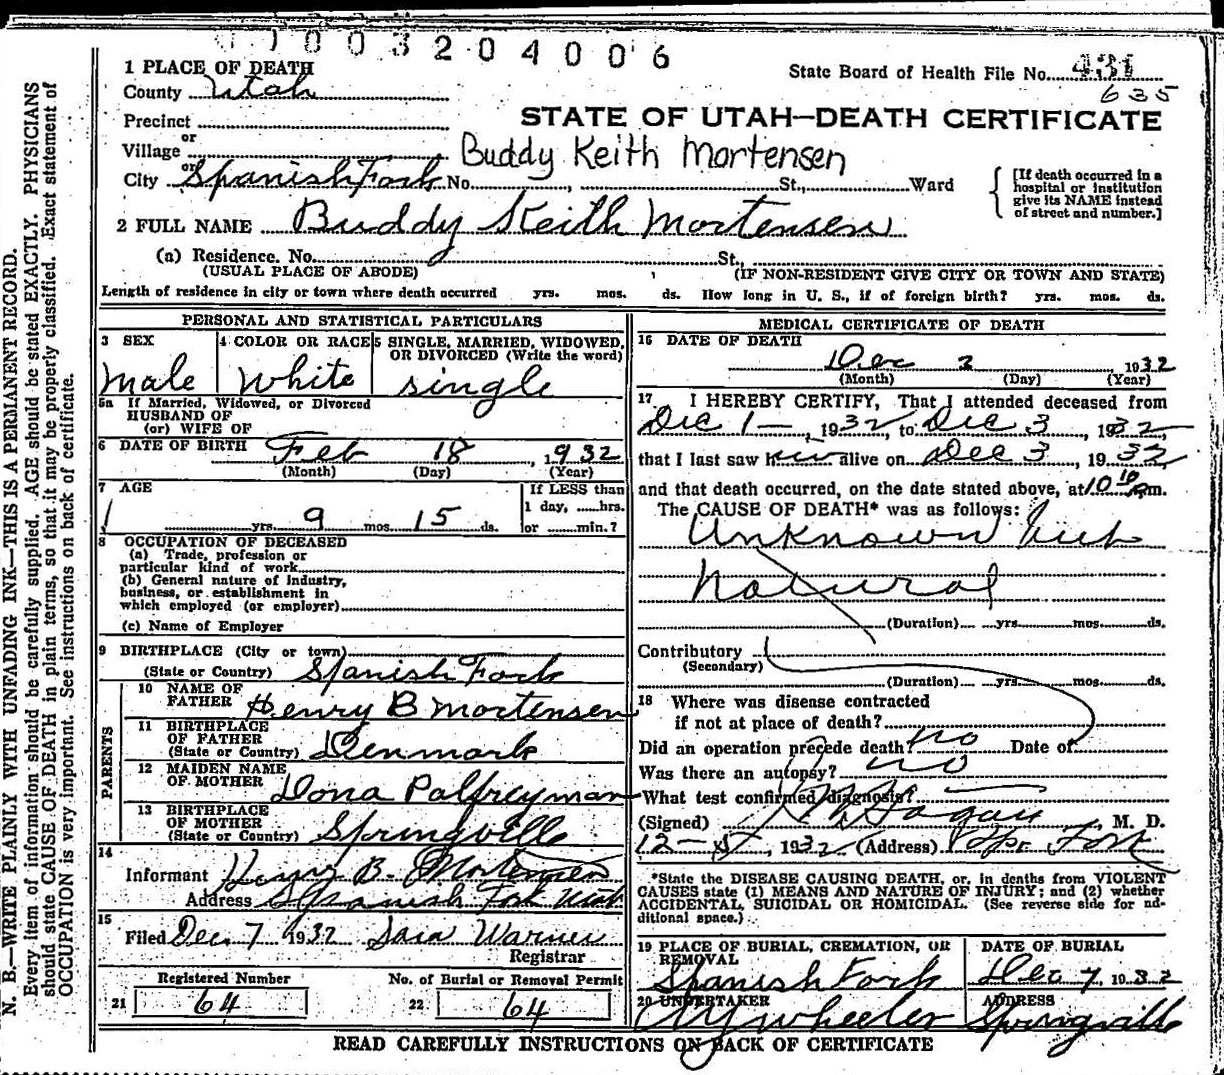 1003204006
1 PLACE OF DEATH
State Board of Health File No. 431
County Utah
635
Precinct
STATE OF UTAH—DEATH CERTIFICATE
or
Village
Buddy Keith Mortensen
or
City Spanish Fork No. , St., Ward
[If death occurred in a
hospital or institution
give its NAME instead
of street and number.]
2 FULL NAME Buddy Keith Mortensen
(a) Residence. No. St.,
(USUAL PLACE OF ABODE) (IF NON-RESIDENT GIVE CITY OR TOWN AND STATE)
Length of residence in city or town where death occurred yrs. mos. ds. How long in U. S., if of foreign birth? yrs. mos. ds.
PERSONAL AND STATISTICAL PARTICULARS
3 SEX 4 COLOR OR RACE 5 SINGLE, MARRIED, WIDOWED,
OR DIVORCED (Write the word)
Male White single
5a If Married, Widowed, or Divorced
HUSBAND OF
(or) WIFE OF
6 DATE OF BIRTH Feb 18, 1932
(Month) (Day) (Year)
7 AGE If LESS than
1 day, hrs.
yrs. 9 mos. 15 ds. or min.?
8 OCCUPATION OF DECEASED
(a) Trade, profession or
particular kind of work
(b) General nature of industry,
business, or establishment in
which employed (or employer)
(c) Name of Employer
9 BIRTHPLACE (City or town)
(State or Country) Spanish Fork
PARENTS
10 NAME OF
FATHER Henry B Mortensen
11 BIRTHPLACE
OF FATHER
(State or Country) Denmark
12 MAIDEN NAME
OF MOTHER Dona Palfreyman
13 BIRTHPLACE
OF MOTHER
(State or Country) Springville
14
Informant Henry B. Mortensen
Address Spanish Fork Utah
15
Filed Dec. 7 1932 Sara Warner
Registrar
Registered Number No. of Burial or Removal Permit
21 64 22 64
MEDICAL CERTIFICATE OF DEATH
16 DATE OF DEATH
Dec 3 1932
(Month) (Day) (Year)
17 I HEREBY CERTIFY, That I attended deceased from
Dec 1—, 1932, to Dec 3, 1932,
that I last saw him alive on Dec 3, 1932
and that death occurred, on the date stated above, at 10 10 m.
The CAUSE OF DEATH* was as follows:
Unknown but
Natural
(Duration) yrs. mos. ds.
Contributory
(Secondary)
(Duration) yrs. mos. ds.
18 Where was disease contracted
if not at place of death?
Did an operation precede death? no Date of
Was there an autopsy? no
What test confirmed diagnosis?
(Signed) Hagan, M. D.
12- , 1932 (Address) Fork
*State the DISEASE CAUSING DEATH, or, in deaths from VIOLENT
CAUSES state (1) MEANS AND NATURE OF INJURY; and (2) whether
ACCIDENTAL, SUICIDAL OR HOMICIDAL. (See reverse side for ad-
ditional space.)
19 PLACE OF BURIAL, CREMATION, OR
REMOVAL
Spanish Fork
DATE OF BURIAL
Dec 7, 1932
20 UNDERTAKER
A Y Wheeler
ADDRESS
Springville
READ CAREFULLY INSTRUCTIONS ON BACK OF CERTIFICATE
N. B.—WRITE PLAINLY WITH UNFADING INK—THIS IS A PERMANENT RECORD.
Every item of information should be carefully supplied. AGE should be stated EXACTLY. PHYSICIANS
should state CAUSE OF DEATH in plain terms, so that it may be properly classified. Exact statement of
OCCUPATION is very important. See instructions on back of certificate.